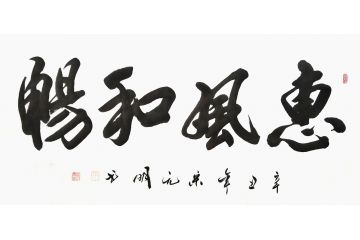 惠風和暢
辛丑年宋元明书